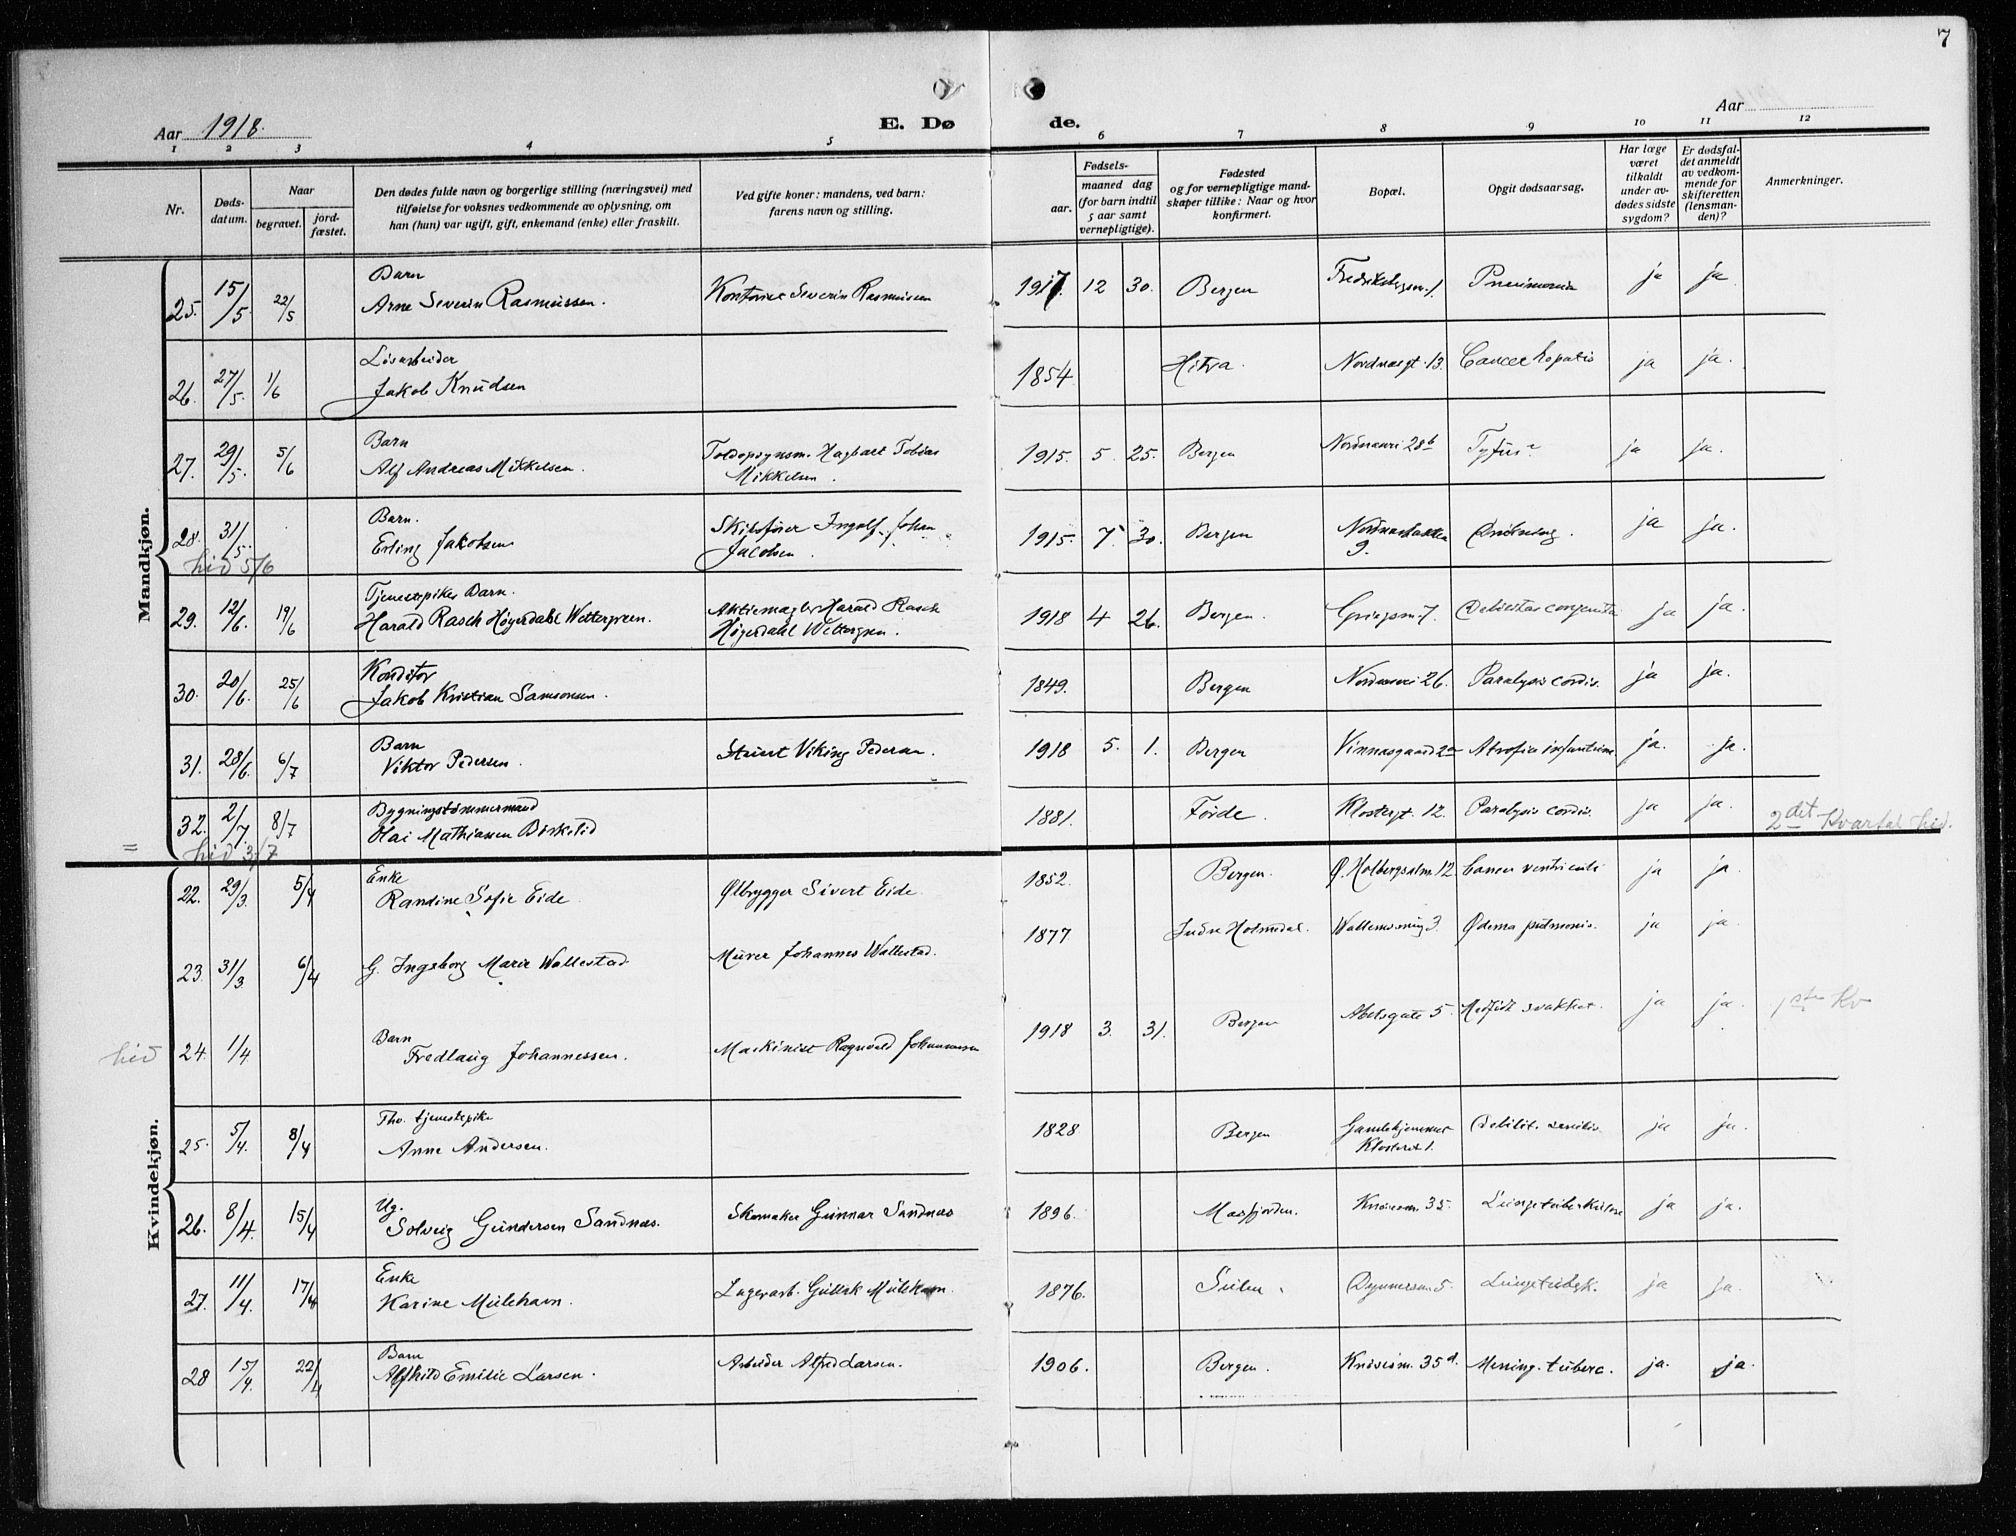 7
Aar 1918.
E. Dø
de.
Aar
1 2 3 4 5 6 7 8 9 10 11 12
Nr.
Døds-
datum.
Naar
begravet.
jord-
fæstet.
Den dødes fulde navn og borgerlige stilling (næringsvei) med
tilføielse for voksnes vedkommende av oplysning, om
han (hun) var ugift, gift, enkemand (enke) eller fraskilt.
Ved gifte koner: mandens, ved barn:
farens navn og stilling.
Fødsels-
aar.
maaned dag
(for barn indtil
5 aar samt
vernepligtige).
Fødested
og for vernepligtige mand-
skaper tillike: Naar og hvor
konfirmert.
Bopæl.
Opgit dødsaarsag.
Har læge
været
tilkaldt
under av-
dødes sidste
sygdom?
Er dødsfal-
det anmeldt
av vedkom-
mende for
skifteretten
(lensman-
den)?
Anmerkninger.
Mandkjøn.
Barn
25. 15/5. 22/5 Arne Severin Rasmussen. Kontorist Severin Rasmussen 1917. 12 30. Bergen 1. Pneumonia ja ja
Løsarbeider
26. 27/5. 1/6 Jakob Knudsen 1854. Hitra. Nordnæsgt. 13. Cancer hepatis ja ja.
Barn
27. 29/5. 5/6 Alf Andreas Mikkelsen. Toldopsynsm. Hagbart Tobias
Mikkelsen. 1915. 5. 25. Bergen Nordnæsvei 28b Tyfus ja ja.
Barn.
28. 31/5. Erling Jakobsen Skibsfører Ingolf Johan
Jacobsen. 1915. 7. 30. Bergen Nordnæsbakken
9. Drukning. ja ja.
hid 5/6
Tjenestepikes Barn.
29. 12/6. 19/6 Harald Rasch Høyerdahl Wettergreen. Aktiemægler Harald Rasch
Høyerdahl Wettergreen. 1918 4 26. Bergen. 7. Debilitas congenita ja ja.
Konditor
30. 20/6. 25/6 Jakob Kristian Samsonsen. 1849. Bergen Nordnæsvei 26. Paralysis cordis. ja ja.
Barn
31. 28/6. 6/7 Viktor Pedersen. Stuert Viking Pedersen. 1918 5. 1. Bergen Vinnæsgaard 2a Atrofia infantium ja. ja.
Bygningstømmermand
32. 2/7. 8/7 Olai Mathiassen Birkelid 1881. Førde. Klostergt. 12. Paralysis cordis ja ja. 2det Kvartal hid.
= hid 3/7
Kvindekjøn.
Enke
22. 29/3. 5/4 Randine Sofie Eide. Ølbrygger Sivert Eide. 1852. Bergen. Ø. Holbergsalm. 12 Cancer ventriculi ja ja.
23. 31/3. 6/4 G. Ingeborg Marie Wallestad. Murer Johannes Wallestad. 1877. Indre Holmedal. 3. Ødema pulmonis. ja ja.
Barn
hid 24. 1/4 Fredlaug Johannessen. Maskinist Ragnvald Johannessen 1918 3. 31. Bergen Abelsgate 5. Medfødt svakhet. ja ja. 1ste Kv
Fhv. tjenestepike
25. 5/4. 8/4 Anne Andersen. 1828. Bergen Gamlehjemmet
Klosteret 1. Debilit. senilis. ja ja.
Ug.
26. 8/4. 15/4 Solveig Gundersen Sandnæs. Skomaker Gunnar Sandnæs 1896. Masfjorden. Knøsesm. 35. Lungetuberkulose ja ja.
Enke
27. 11/4. 17/4 Karine Mulehavn. Lagerarb. Gullik Mulehavn. 1876. Sulen. 5. Lungetuberk. ja ja.
Barn
28 15/4. 22/4 Alfhild Emilie Larsen. Arbeider Alfred Larsen. 1906. Bergen. Knøsesm. 35d. Mening. tuberc. ja. ja.